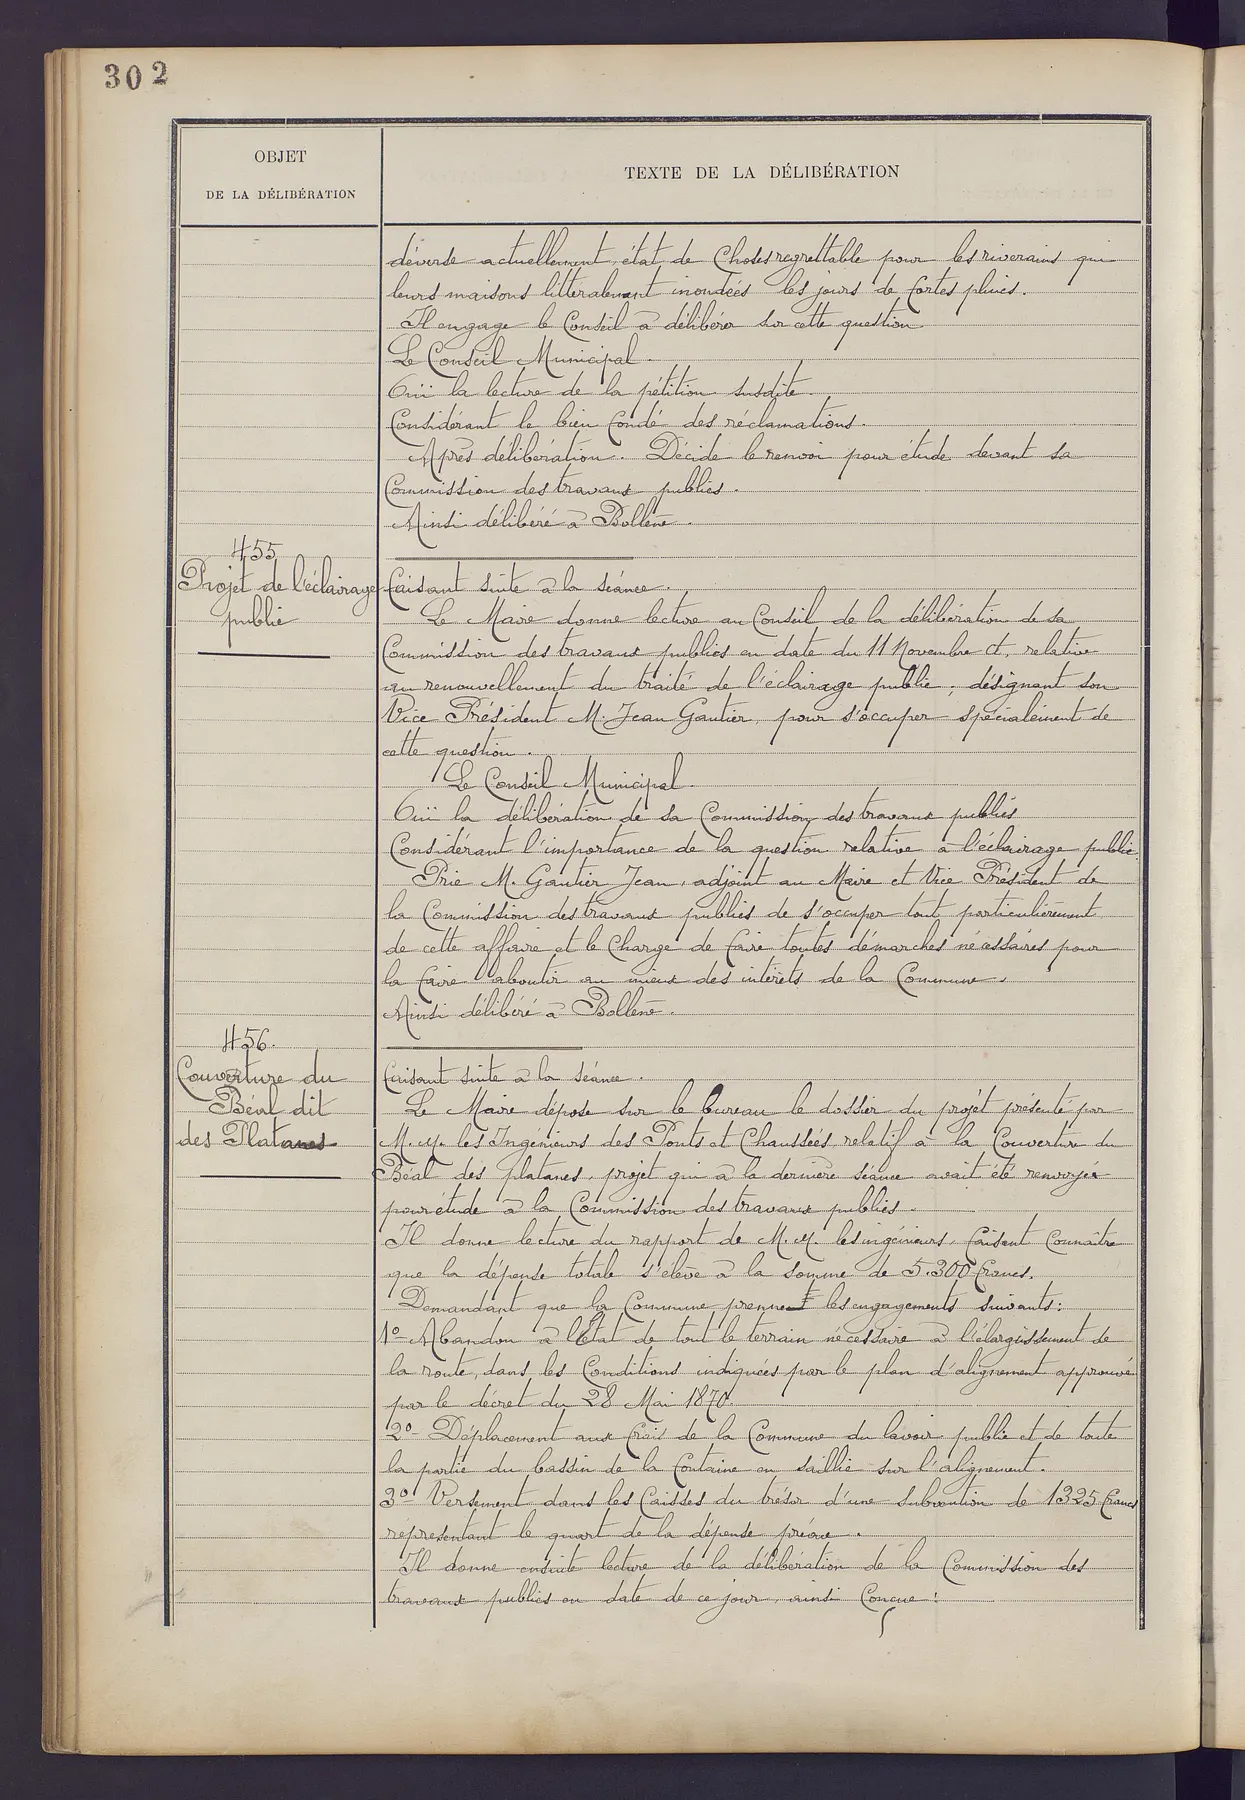 302
OBJET
DE LA DÉLIBÉRATION
TEXTE DE LA DÉLIBÉRATION
déverse actuellement, état de choses regrettable pour les riverains qui
leurs maisons littéralement inondées les jours de fortes pluies.
Il engage le Conseil à délibérer sur cette question
Le Conseil Municipal.
Ouï la lecture de la pétition susdite.
Considérant le bien fondé des réclamations.
Après délibération. Décide le renvoi pour étude devant sa
Commission des travaux publics.
Ainsi délibéré à Bollène.
455
Projet de l'éclairage
public
Faisant suite à la séance.
Le Maire donne lecture au Conseil de la délibération de sa
Commission des travaux publics en date du 11 Novembre ct, relative
au renouvellement du traité de l'éclairage public, désignant son
Vice Président M. Jean Gautier, pour s'occuper spécialement de
cette question.
Le Conseil Municipal.
Ouï la délibération de sa Commission des travaux publics
Considérant l'importance de la question relative à l'éclairage public.
Prie M. Gautier Jean, adjoint au Maire et Vice Président de
la Commission des travaux publics de s'occuper tout particulièrement
de cette affaire et le charge de faire toutes démarches nécessaires pour
la faire aboutir au mieux des intérêts de la Commune.
Ainsi délibéré à Bollène.
456.
Couverture du
Béal dit
des Platanes
Faisant suite à la séance.
Le Maire dépose sur le bureau le dossier du projet présenté par
M.M. les Ingénieurs des Ponts et Chaussées, relatif à la Couverture du
Béal des platanes, projet qui à la dernière séance avait été renvoyée
pour étude à la Commission des travaux publics.
Il donne lecture du rapport de M.M. les ingénieurs, faisant connaître
que la dépense totale s'élève à la somme de 5.300 francs.
Demandant que la Commune prenne les engagements suivants:
1º Abandon à l'Etat de tout le terrain nécessaire à l'élargissement de
la route, dans les conditions indiquées par le plan d'alignement approuvé
par le décret du 28 Mai 1870.
2º Déplacement aux frais de la Commune du lavoir public et de toute
la partie du bassin de la fontaine en saillie sur l'alignement.
3º Versement dans les Caisses du trésor d'une subvention de 1325 francs
représentant le quart de la dépense prévue.
Il donne ensuite lecture de la délibération de la Commission des
travaux publics en date de ce jour, ainsi conçue: